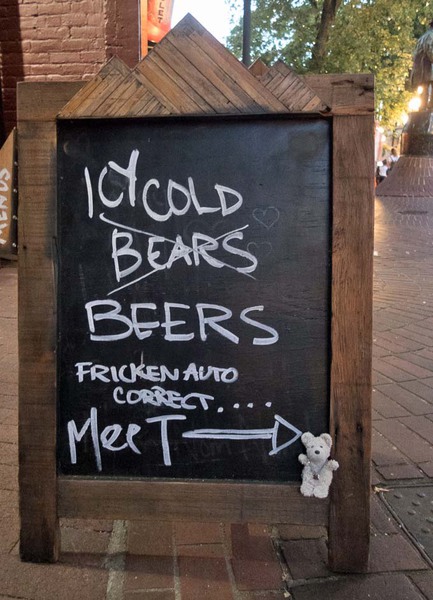 ICY COLD
BEARS
BEERS
FRICKEN AUTO
CORRECT....
MeeT